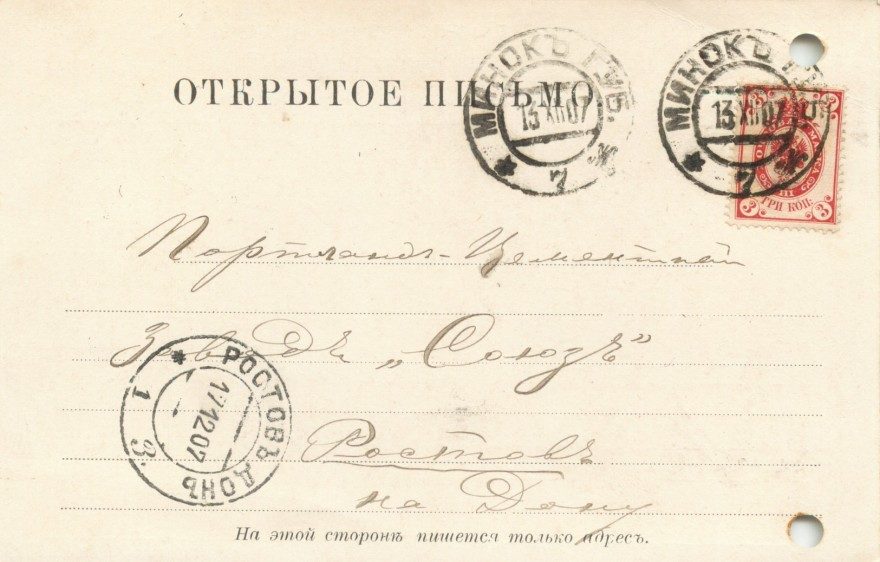 ОТКРЫТОЕ ПИСЬМО.
МИНСКЪ ГУБ.
13 XII 07
7
МИНСКЪ ГУБ.
13 XII 07
3 3
ТРИ КОП.
Портландъ-Цементный
Заводъ „Союзъ"
Ростовъ
на Дону
РОСТОВЪ ДОНЪ
171207
1 3
На этой сторонѣ пишется только адресъ.